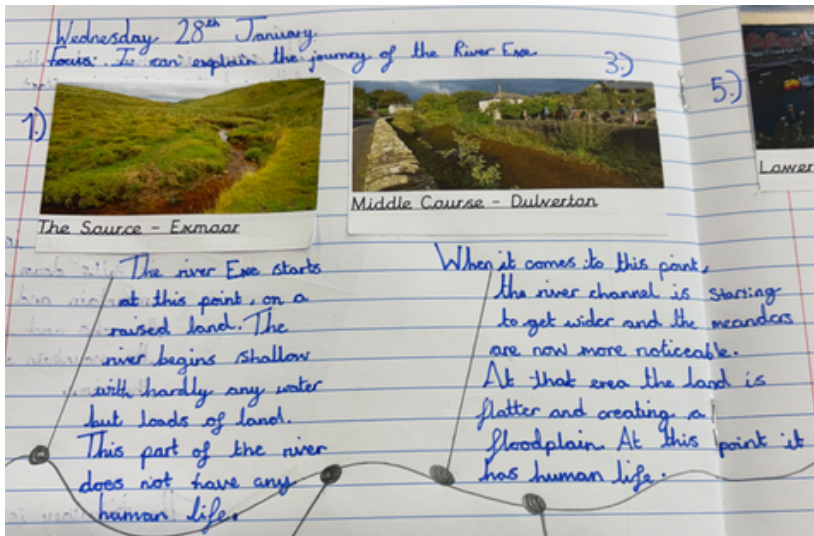 Wednesday 28th January.
Focus: I can explain the journey of the River Exe
1.)
The Source - Exmoor
The river Exe starts
at this point, on a
raised land. The
river begins shallow
with hardly any water
but loads of land.
This part of the river
does not have any
human life.
3.)
Middle Course - Dulverton
When it comes to this point,
the river channel is starting
to get wider and the meanders
are now more noticeable.
At that erea the land is
flatter and creating a
floodplain. At this point it
has human life.
5.)
Lower